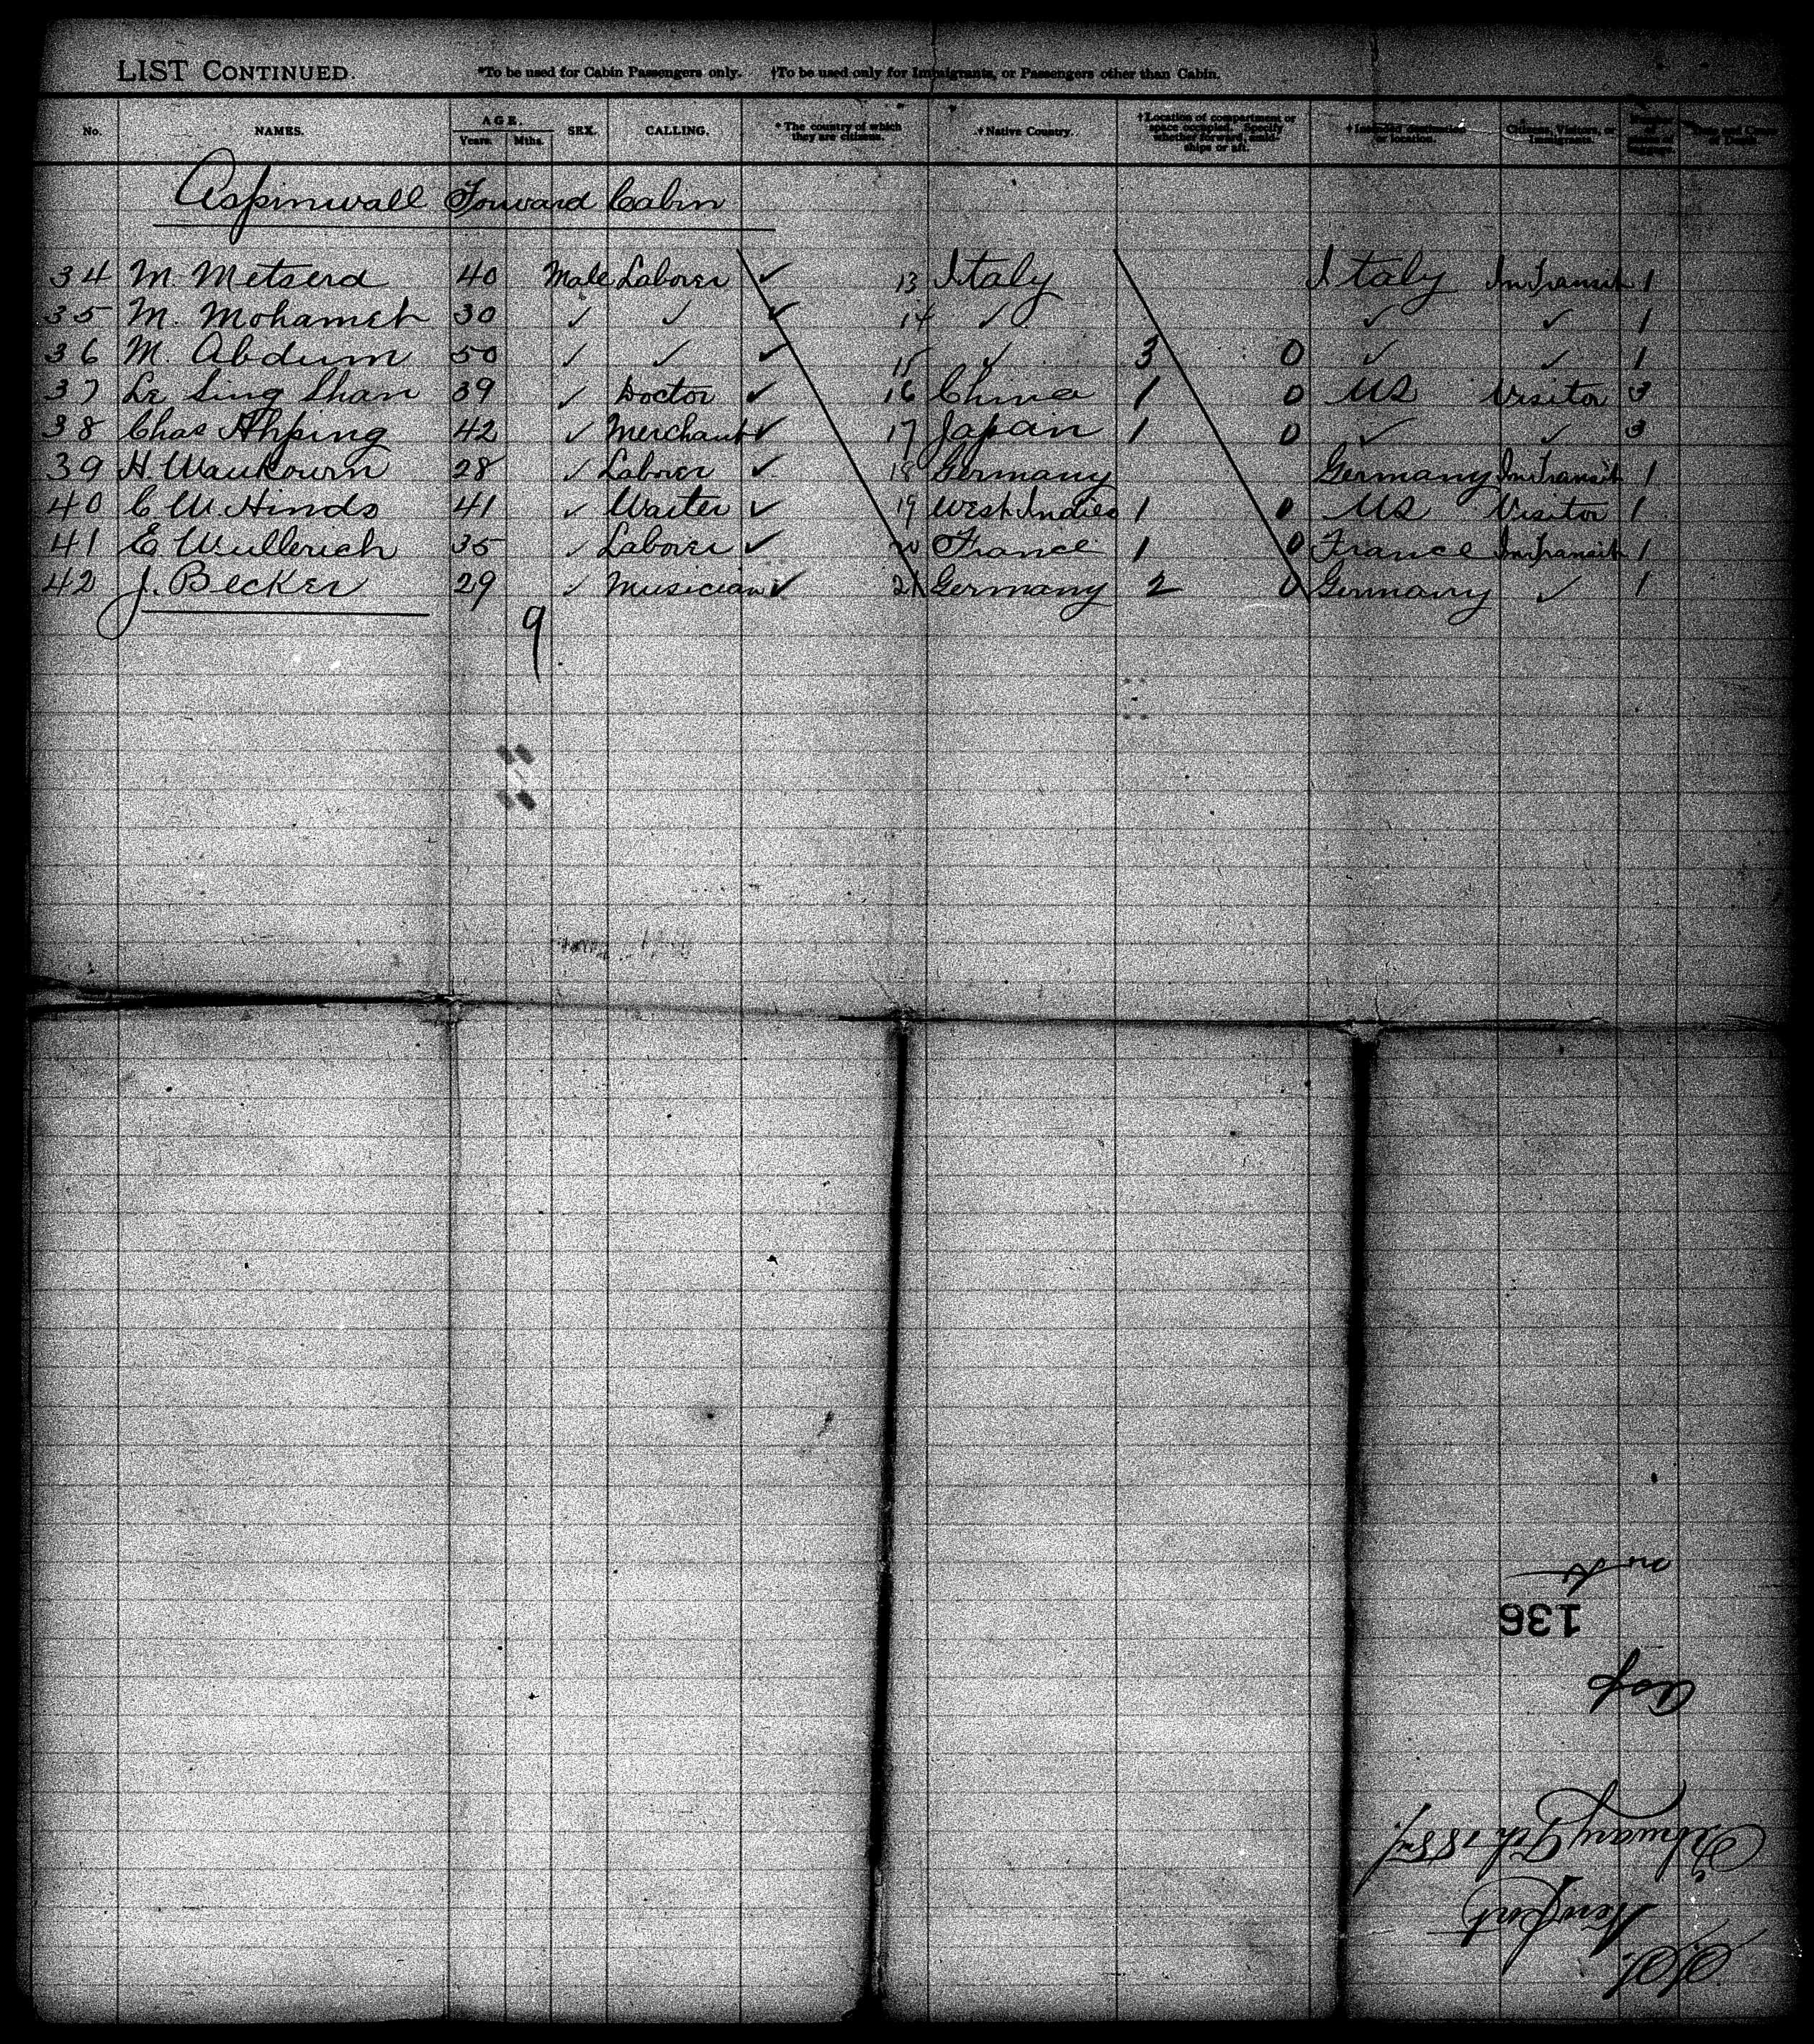 LIST CONTINUED. *To be used for Cabin Passengers only. †To be used only for Immigrants, or Passengers other than Cabin.
No. NAMES. AGE. Years. Mths. SEX. CALLING. * The country of which they are citizens. † Native Country. † Location of compartment or space occupied. Specify whether forward, amidships or aft. † Intended destination or location. Citizens, Visitors, or Immigrants. Number of
Aspinwall Forward Cabin
34 M. Metserd 40 Male Laborer ✓ 13 Italy Italy In Transit 1
35 M. Mohamet 30 ✓ ✓ ✓ 14 ✓ ✓ ✓ 1
36 M. Abdum 50 ✓ ✓ ✓ 15 ✓ 3 0 ✓ ✓ 1
37 Le Sing Shan 39 ✓ Doctor ✓ 16 China 1 0 US Visitor 3
38 Chas Ahping 42 ✓ Merchant ✓ 17 Japan 1 0 ✓ ✓ 3
39 H. Waukourn 28 ✓ Laborer ✓ 18 Germany Germany In Transit 1
40 C. W. Hinds 41 ✓ Waiter ✓ 19 West Indies 1 0 US Visitor 1
41 E Wullerich 35 ✓ Laborer ✓ 20 France 1 0 France In Transit 1
42 J. Becker 29 ✓ Musician ✓ 21 Germany 2 0 Germany ✓ 1
9
S.S.
Newport
February 9th 1889
Asp
136